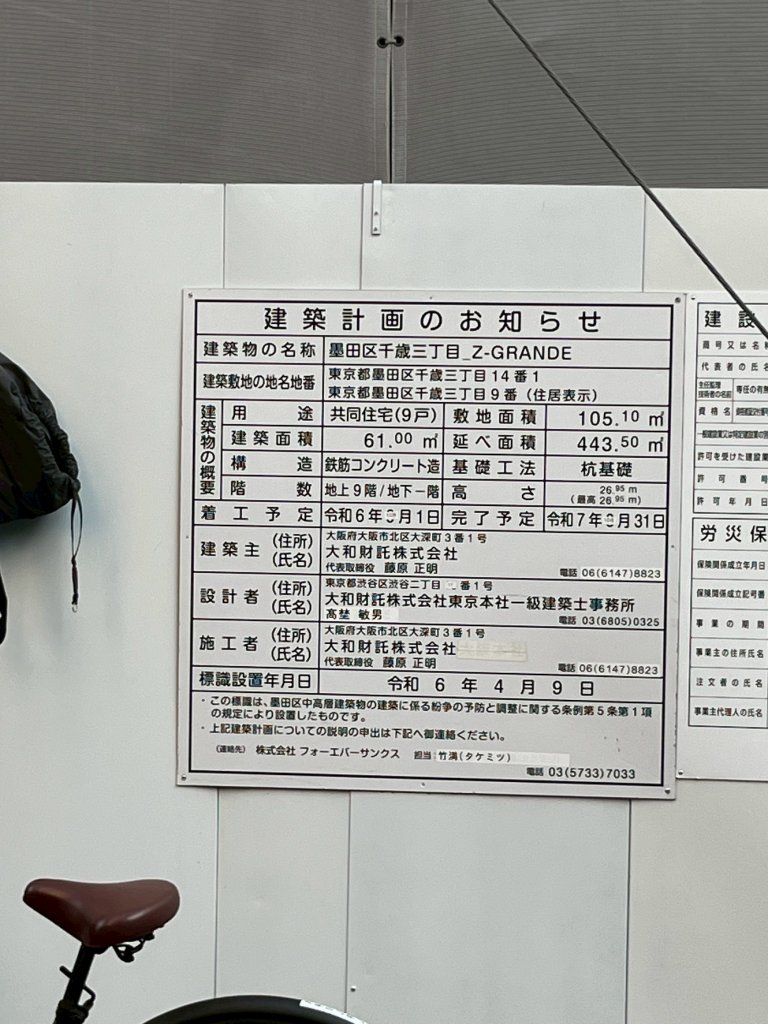 建築計画のお知らせ
建築物の名称 墨田区千歳三丁目_Z-GRANDE
建築敷地の地名地番 東京都墨田区千歳三丁目14番1
東京都墨田区千歳三丁目9番（住居表示）
建築物の概要
用途 共同住宅(9戸) 敷地面積 105.10 ㎡
建築面積 61.00 ㎡ 延べ面積 443.50 ㎡
構造 鉄筋コンクリート造 基礎工法 杭基礎
階数 地上9階/地下ー階 高さ 26.95 m
(最高 26.95 m)
着工予定 令和6年 月1日 完了予定 令和7年 月31日
建築主 (住所) (氏名) 大阪府大阪市北区大深町3番1号
大和財託株式会社
代表取締役 藤原 正明
電話 06(6147)8823
設計者 (住所) (氏名) 東京都渋谷区渋谷二丁目 番1号
大和財託株式会社東京本社一級建築士事務所
髙埜 敏男
電話 03(6805)0325
施工者 (住所) (氏名) 大阪府大阪市北区大深町3番1号
大和財託株式会社
代表取締役 藤原 正明
電話 06(6147)8823
標識設置年月日 令和 6 年 4 月 9 日
・この標識は、墨田区中高層建築物の建築に係る紛争の予防と調整に関する条例第5条第1項
の規定により設置したものです。
・上記建築計画についての説明の申出は下記へ御連絡ください。
（連絡先） 株式会社 フォーエバーサンクス 担当 竹溝(タケミツ)
電話 03(5733)7033
建設
商号又は名称
代表者の氏名
主任監理
技術者の氏名 専任の有無
資格名
許可を受けた建設業
許可番号
許可年月日
労災保
保険関係成立年月日
保険関係成立記号番
事業の期間
事業主の住所氏名
注文者の氏名
事業主代理人の氏名